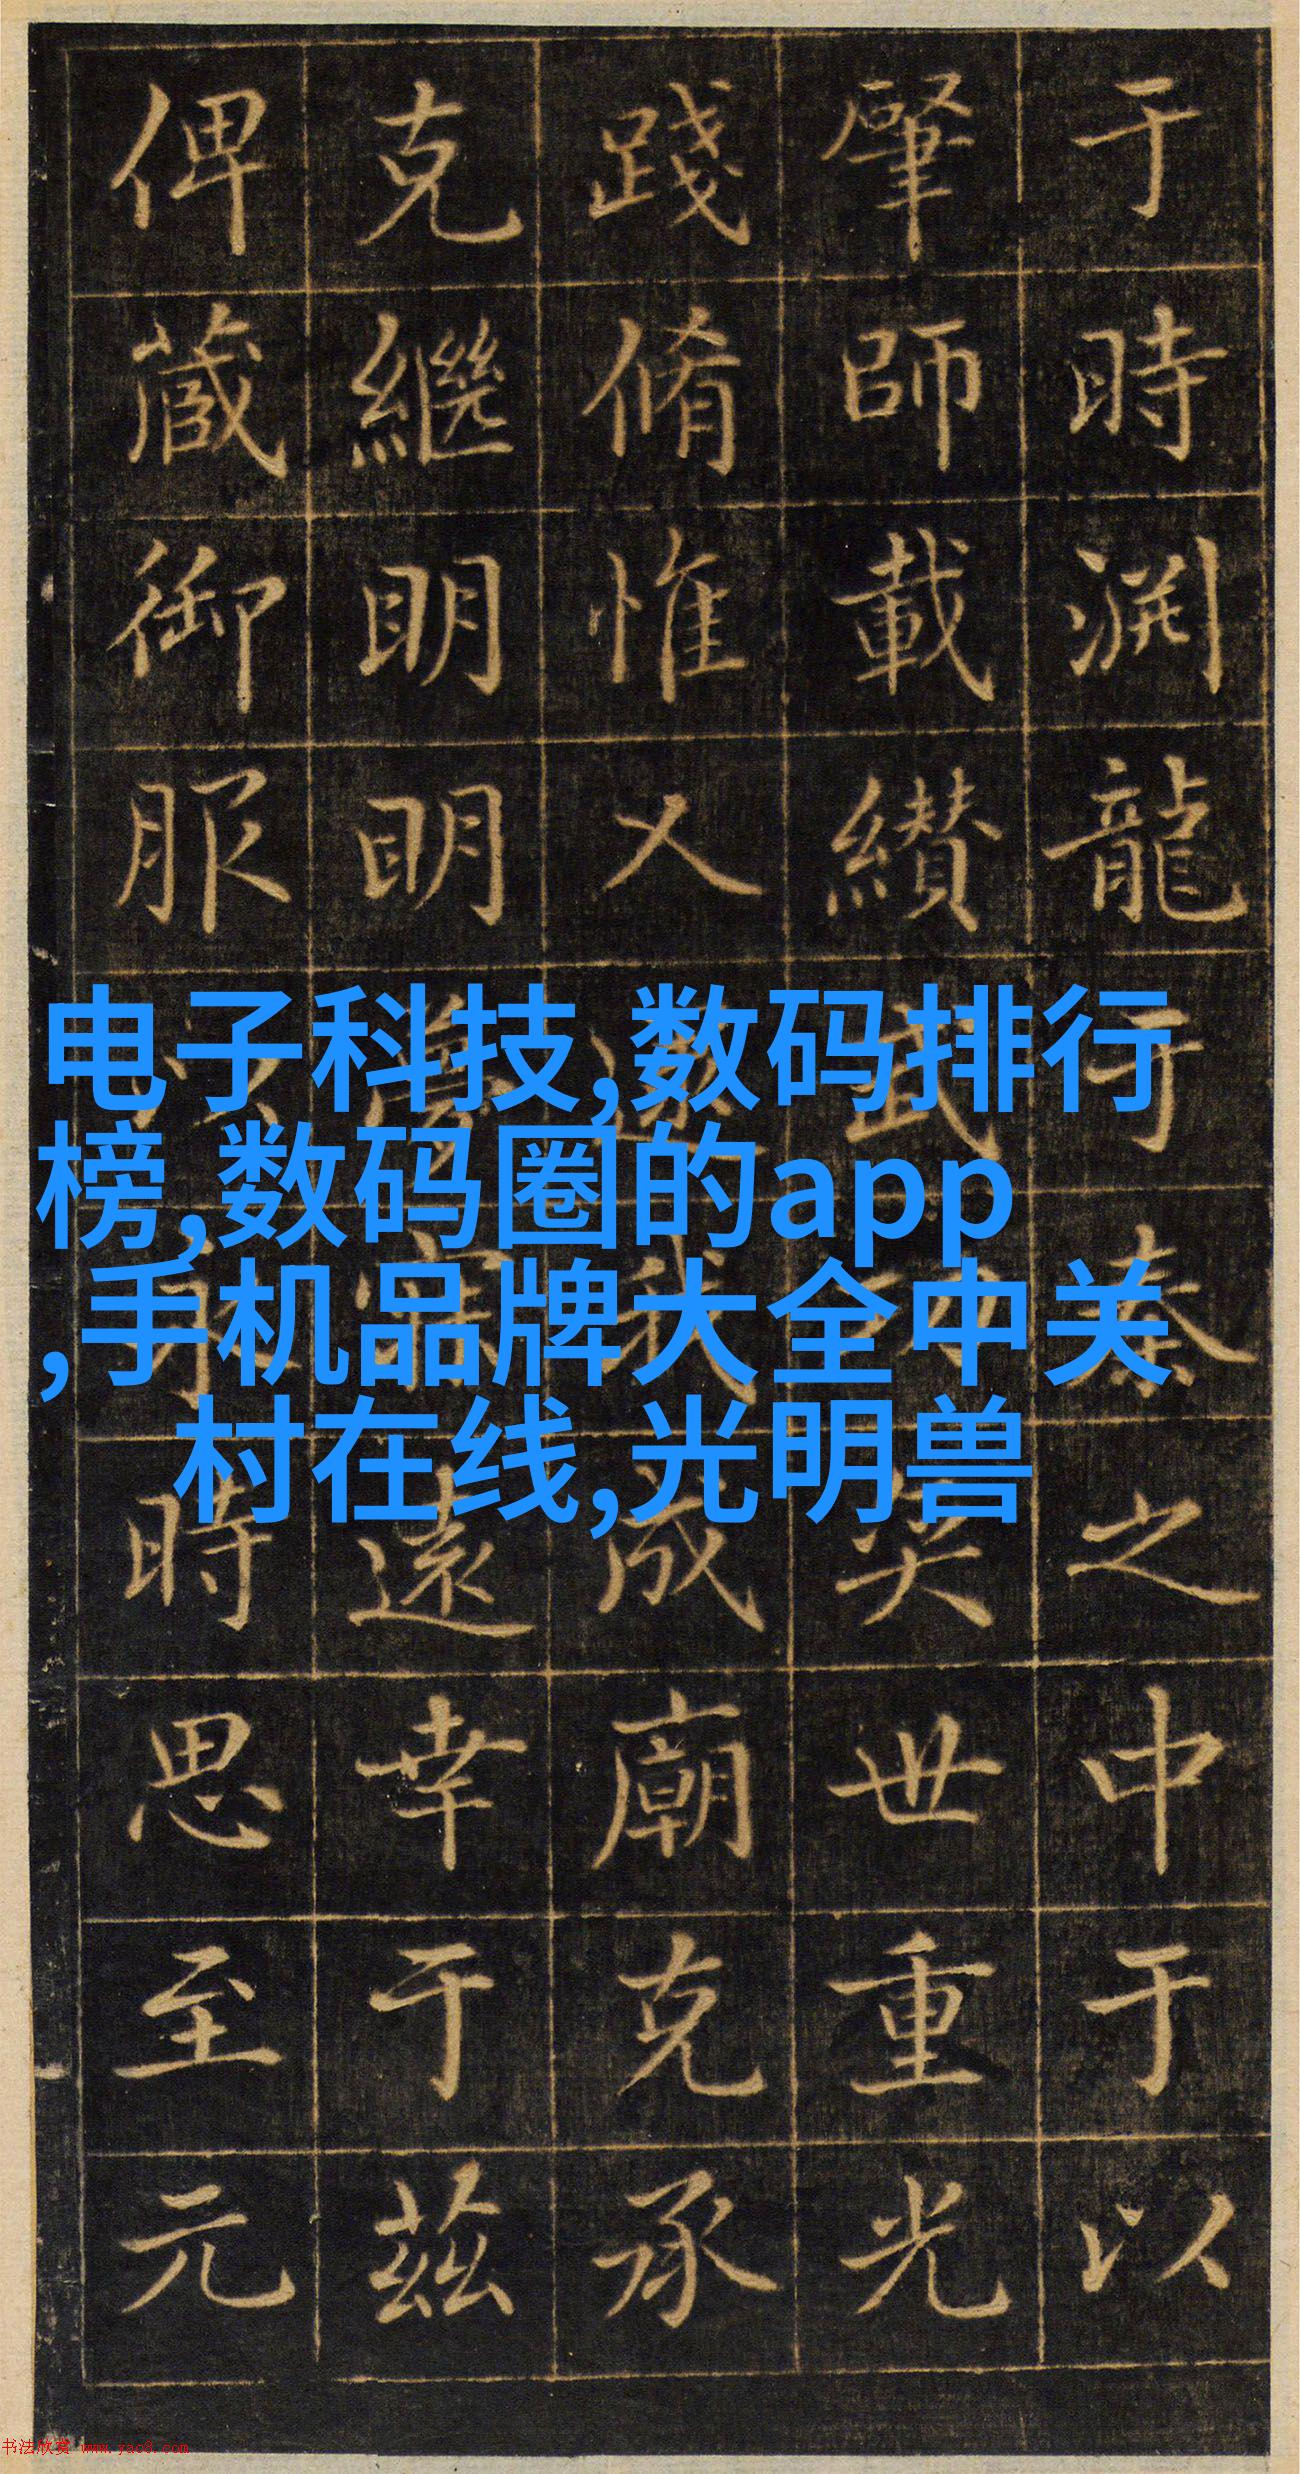 于時渊龍于秦之中于以
肇師載纘武奕世重光
踐脩惟我成廟克承
克繼明明遠幸于茲
俾蔵御服時思至元
电子科技,数码排行
榜,数码圈的app
,手机品牌大全中关
村在线,光明兽
书法欣赏 www.yac8.com